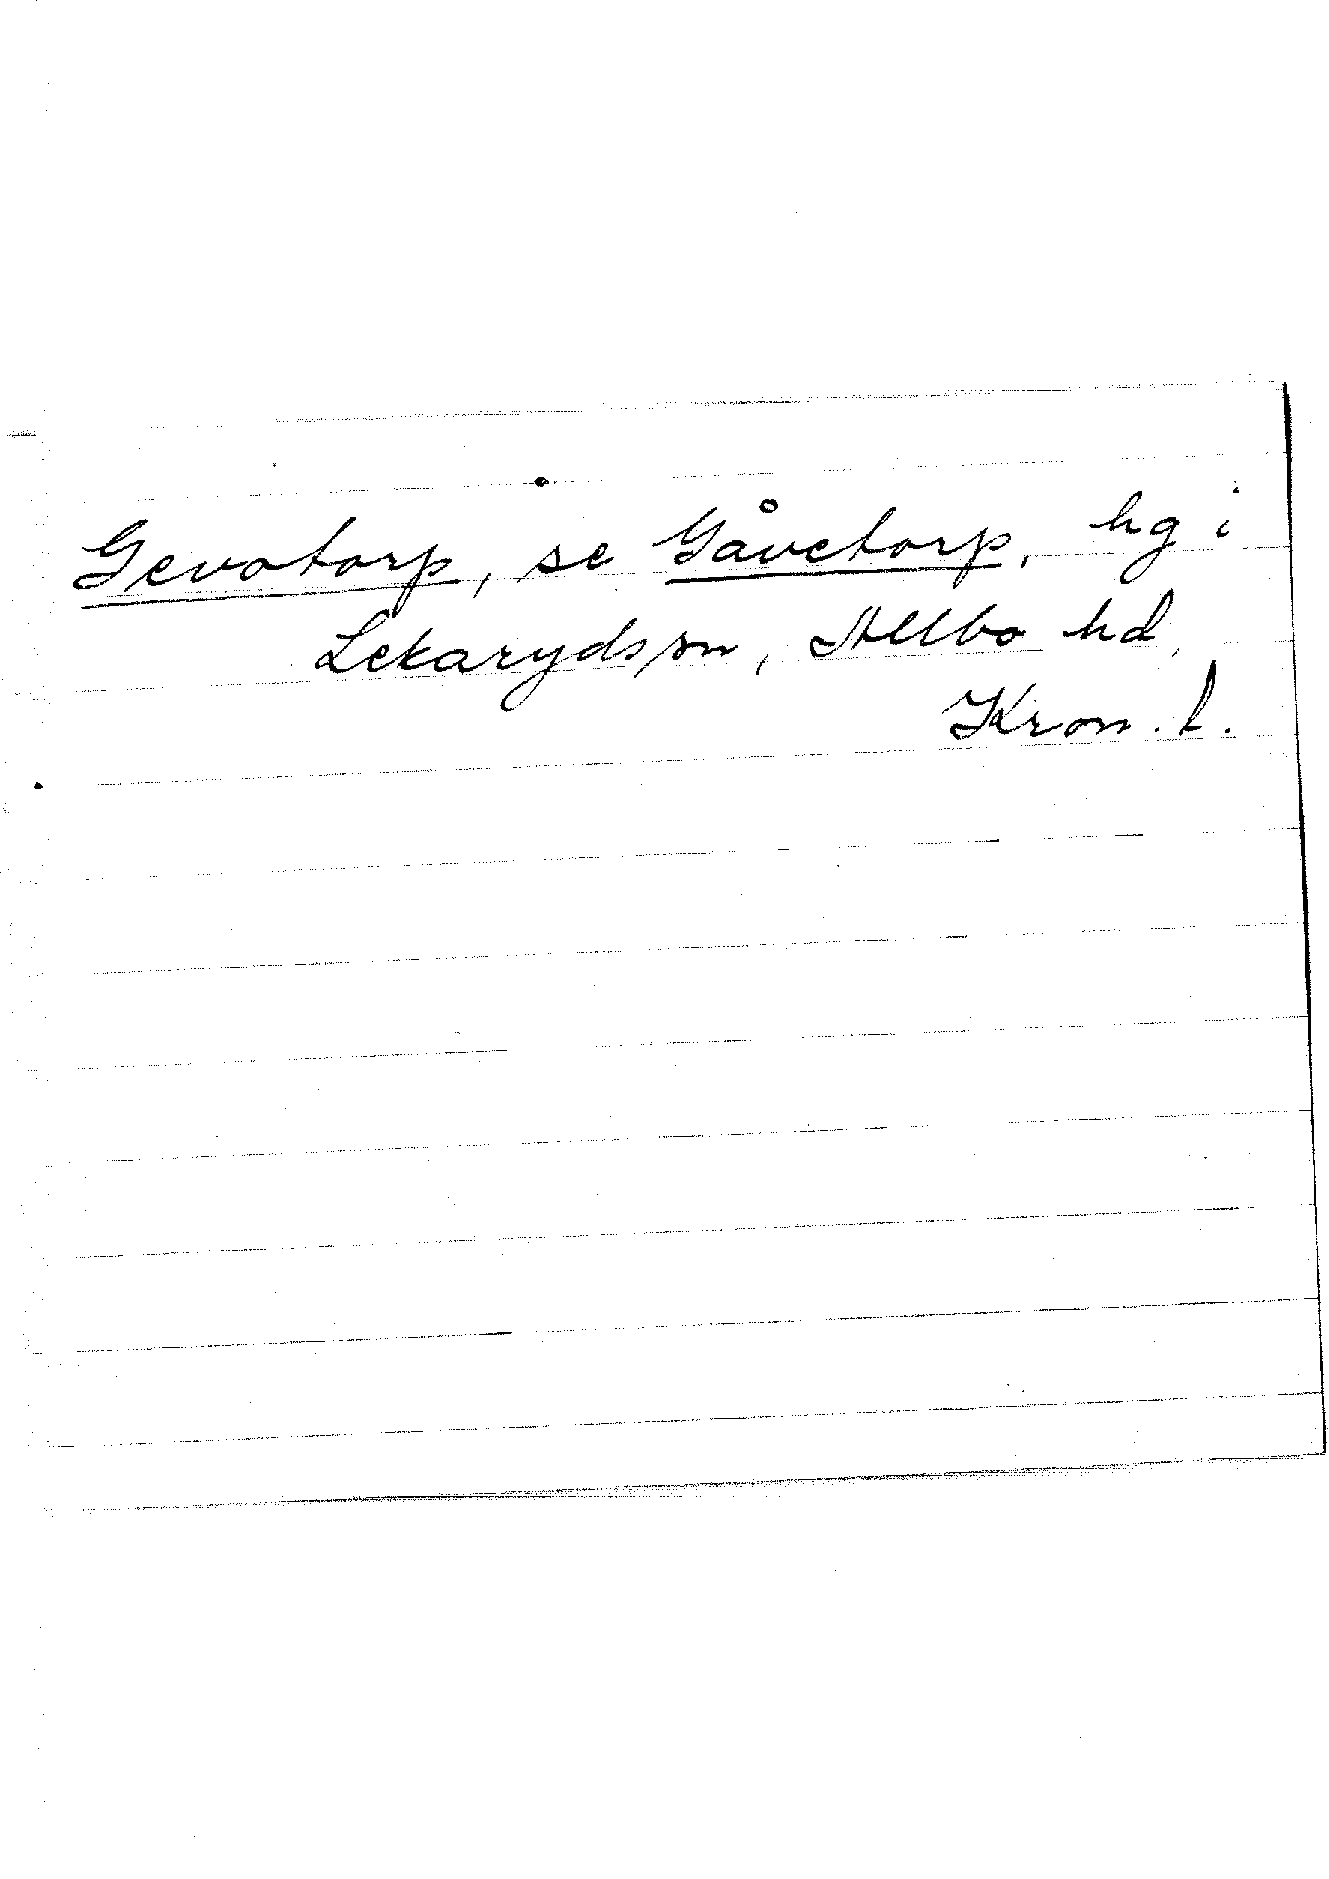 Gevotorp, se Gåvetorp, hg i
Lekaryds sn, Allbo hd,
Kron. l.